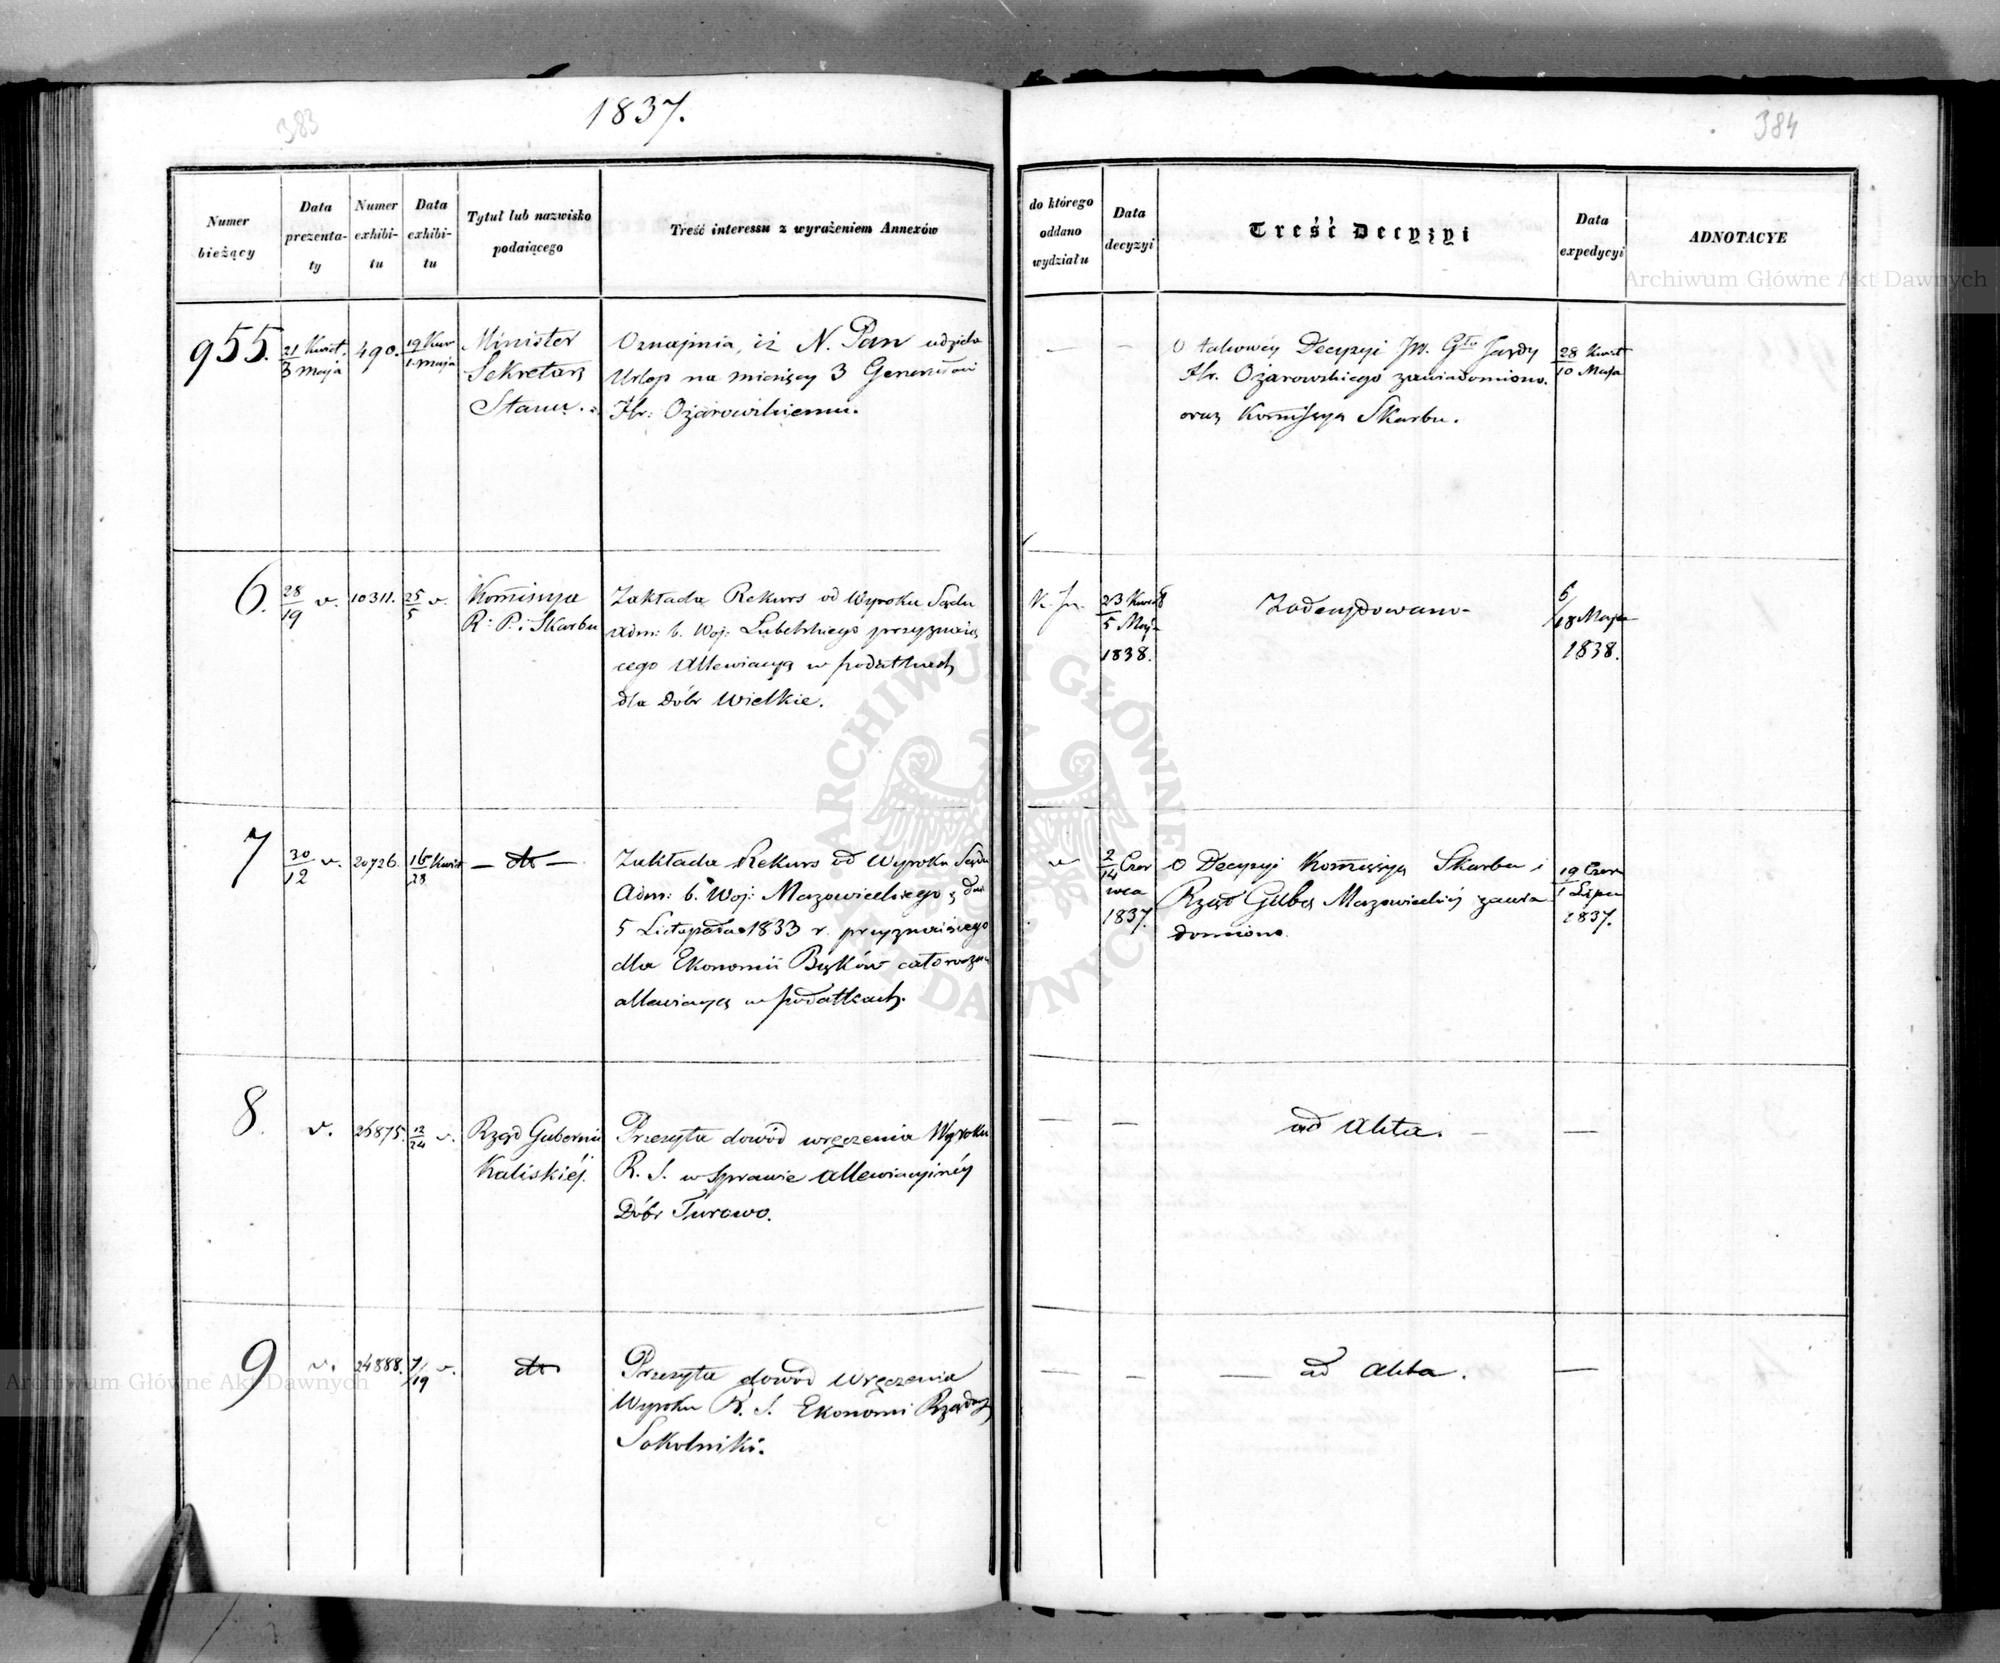 383
1837.
384
Numer bieżący
Data prezenta-ty
Numer exhibi-tu
Data exhibi-tu
Tytuł lub nazwisko podaiącego
Treść interessu z wyrażeniem Annexów
do którego oddano wydziału
Data decyzyi
Treść Decyzyi
Data expedycyi
ADNOTACYE
955.
21 Kwiet.
3 Maja
490.
19 Kw
1 Maja
Minister
Sekretarz
Stanu.
Oznajmia, iż N. Pan udziela
Urlop na miesięcy 3 Generałowi
Hr: Ożarowskiemu.
— —
O takowéj Decyzyi Jw. Gła Jazdy
Hr. Ożarowskiego zawiadomiono.
oraz Kommissya Skarbu.
28 Kwiet
10 Maja
6.
28/19 v.
10311.
25/5 v.
Kommissya
R. P. i Skarbu
Zakłada Rekurs od Wyroku Sądu
Adm: b. Woj: Lubelskiego przyznaią
cego Allewiacyą w podatkach
dla Dóbr Wielkie.
23 Kwiet
5 Maja
1838.
Zadecydowano
6/18 Maja
1838.
7
30/12 v.
20726.
16/28 Kwiet
— dto —
Zakłada Rekurs od Wyroku Sądu
Adm: b. Woj: Mazowieckiego z dnia
5 Listopada 1833 r. przyznaiącego
dla Ekonomii Bąków całoroczną
allewiacyą w podatkach.
v
2/14 Czer
wca
1837.
O Decyzyi Kommissya Skarbu i
Rząd Gub. Mazowieckiéj zawia
domiono.
19 Czer
1 Lipca
1837.
8.
v.
25875.
12/24 v.
Rząd Gubernii
Kaliskiéj.
Przesyła dowód wręczenia Wyroku
R. S. w sprawie allewiacyinéj
Dóbr Turowo.
— —
ad Akta. —
—
9
v.
24888.
7/19 v.
dto
Przesyła dowód wręczenia
Wyroku R. S. Ekonomi Rządowéj
Sokolniki.
— —
— ad Akta.
—
Archiwum Główne Akt Dawnych
Archiwum Główne Akt Dawnych
ARCHIWUM GŁÓWNE AKT DAWNYCH